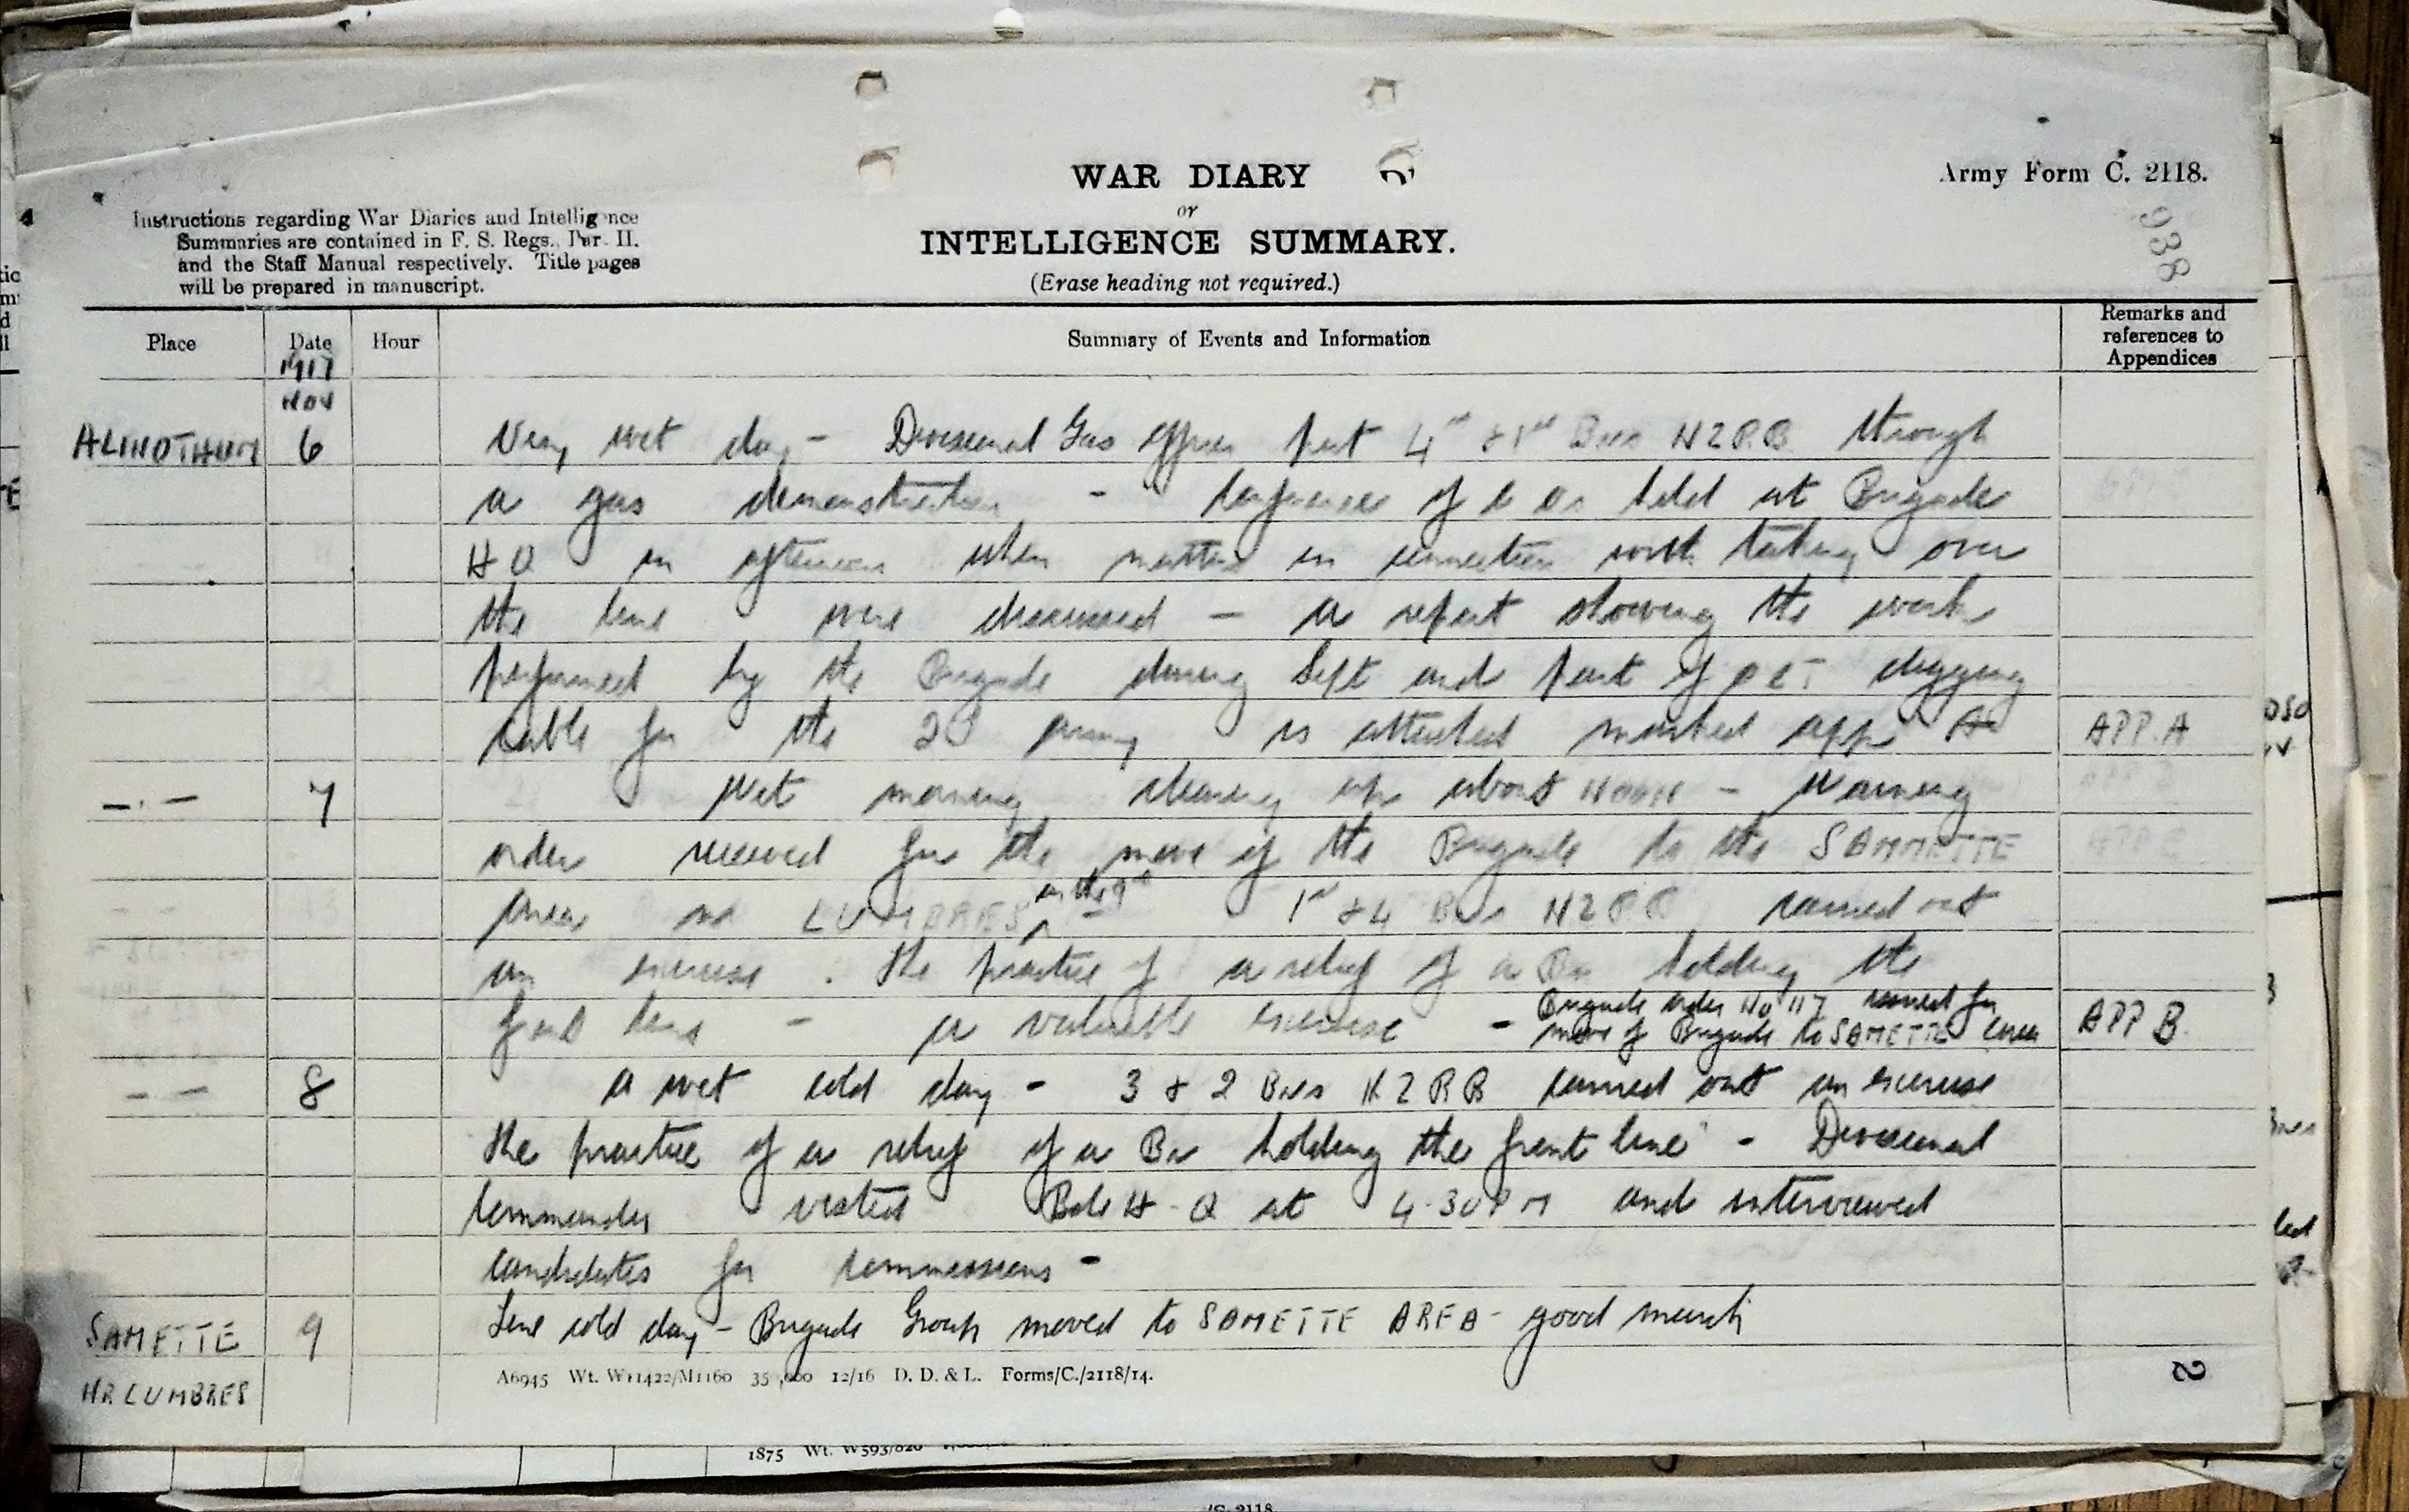 WAR DIARY
or
INTELLIGENCE SUMMARY.
(Erase heading not required.)
Army Form C. 2118.
938
Instructions regarding War Diaries and Intelligence
Summaries are contained in F. S. Regs., Part II.
and the Staff Manual respectively. Title pages
will be prepared in manuscript.
Place Date Hour Summary of Events and Information Remarks and references to Appendices
1917
NOV
ALINGTHUN 6 Very wet day - Divisional Gas Officer put 4th & 1st Bns NZRB through
a gas demonstration - Conference of C Os held at Brigade
HQ in afternoon when matters in connection with taking over
the line were discussed - a report showing the work
performed by the Brigade during Sept and part of OCT digging
cable for the 2d Army is attached marked app A APP. A
— . — 7 Wet morning clearing up about NOON - Warning
order received for the move of the Brigade to the SAMMETTE
area nr LUMBRES on the 9th 1st & 4 Bns NZRB carried out
an exercise . The practice of a relief of a Bn holding the
front line - a valuable exercise - Brigade order No 117 issued for
move of Brigade to SAMETTE area APP B.
— — 8 a wet cold day - 3 & 2 Bns NZRB carried out an exercise
the practice of a relief of a Bn holding the front line - Divisional
Commander visited Bde H-Q at 4.30 PM and interviewed
candidates for commissions -
SAMETTE 9 Fine cold day - Brigade Group moved to SAMETTE AREA - good march
NR LUMBRES
A6945 Wt. W11422/M1160 350,000 12/16 D. D. & L. Forms/C./2118/14.
2
1875 Wt. W593/826